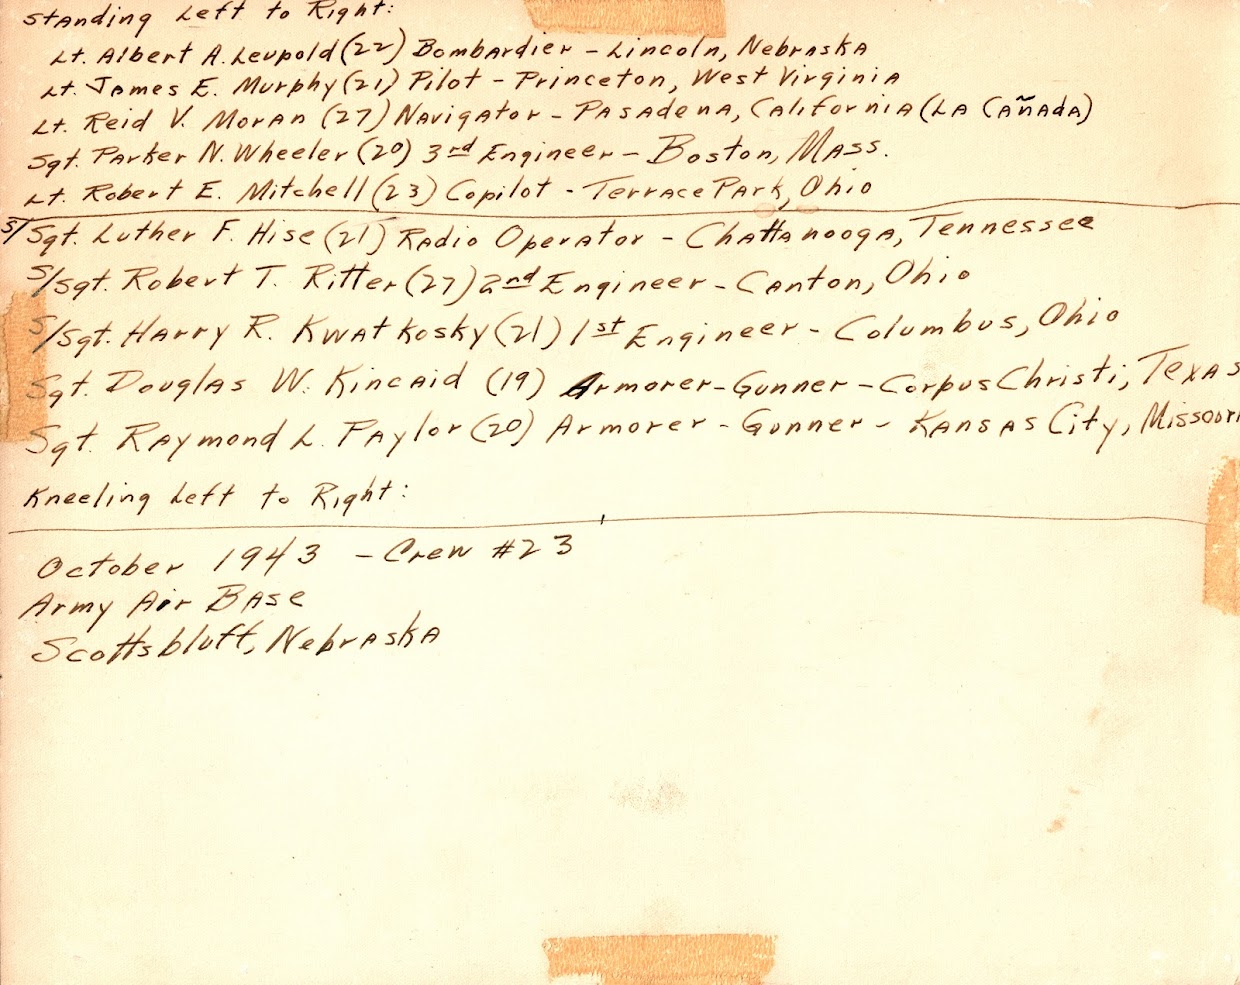 Standing Left to Right:
Lt. Albert A. Leupold (22) Bombardier - Lincoln, Nebraska
Lt. James E. Murphy (21) Pilot - Princeton, West Virginia
Lt. Reid V. Moran (27) Navigator - Pasadena, California (La Cañada)
Sgt. Parker N. Wheeler (20) 3rd Engineer - Boston, Mass.
Lt. Robert E. Mitchell (23) Copilot - Terrace Park, Ohio
S/Sgt. Luther F. Hise (21) Radio Operator - Chattanooga, Tennessee
S/Sgt. Robert T. Ritter (27) 2nd Engineer - Canton, Ohio
S/Sgt. Harry R. Kwatkosky (21) 1st Engineer - Columbus, Ohio
Sgt. Douglas W. Kincaid (19) Armorer-Gunner - Corpus Christi, Texas
Sgt. Raymond L. Paylor (20) Armorer - Gunner - Kansas City, Missouri
Kneeling Left to Right:
October 1943 - Crew #23
Army Air Base
Scottsbluff, Nebraska